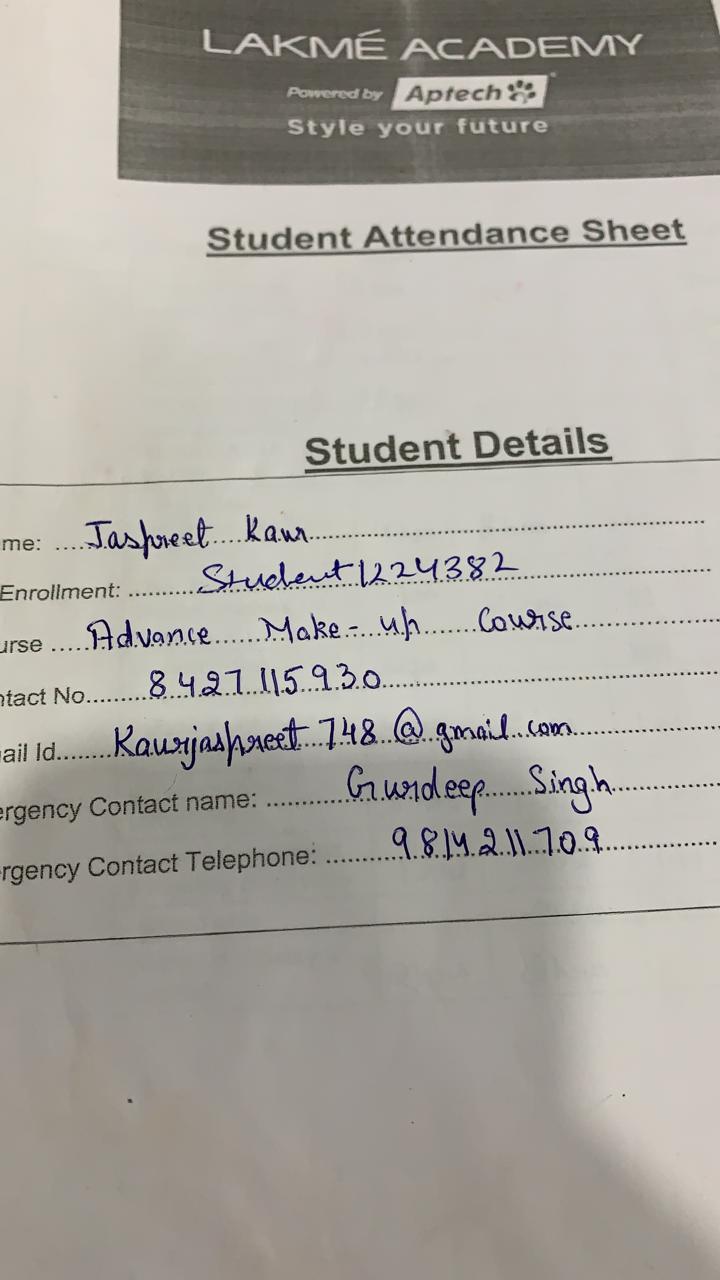 LAKMÉ ACADEMY
Powered by Aptech
Style your future
Student Attendance Sheet
Student Details
me: Jaspreet Kaur
Enrollment: Student1224382
urse Advance Make-up Course
ntact No. 8427115930
ail Id. Kaurjaspreet748@gmail.com
ergency Contact name: Gurdeep Singh
rgency Contact Telephone: 9814211709